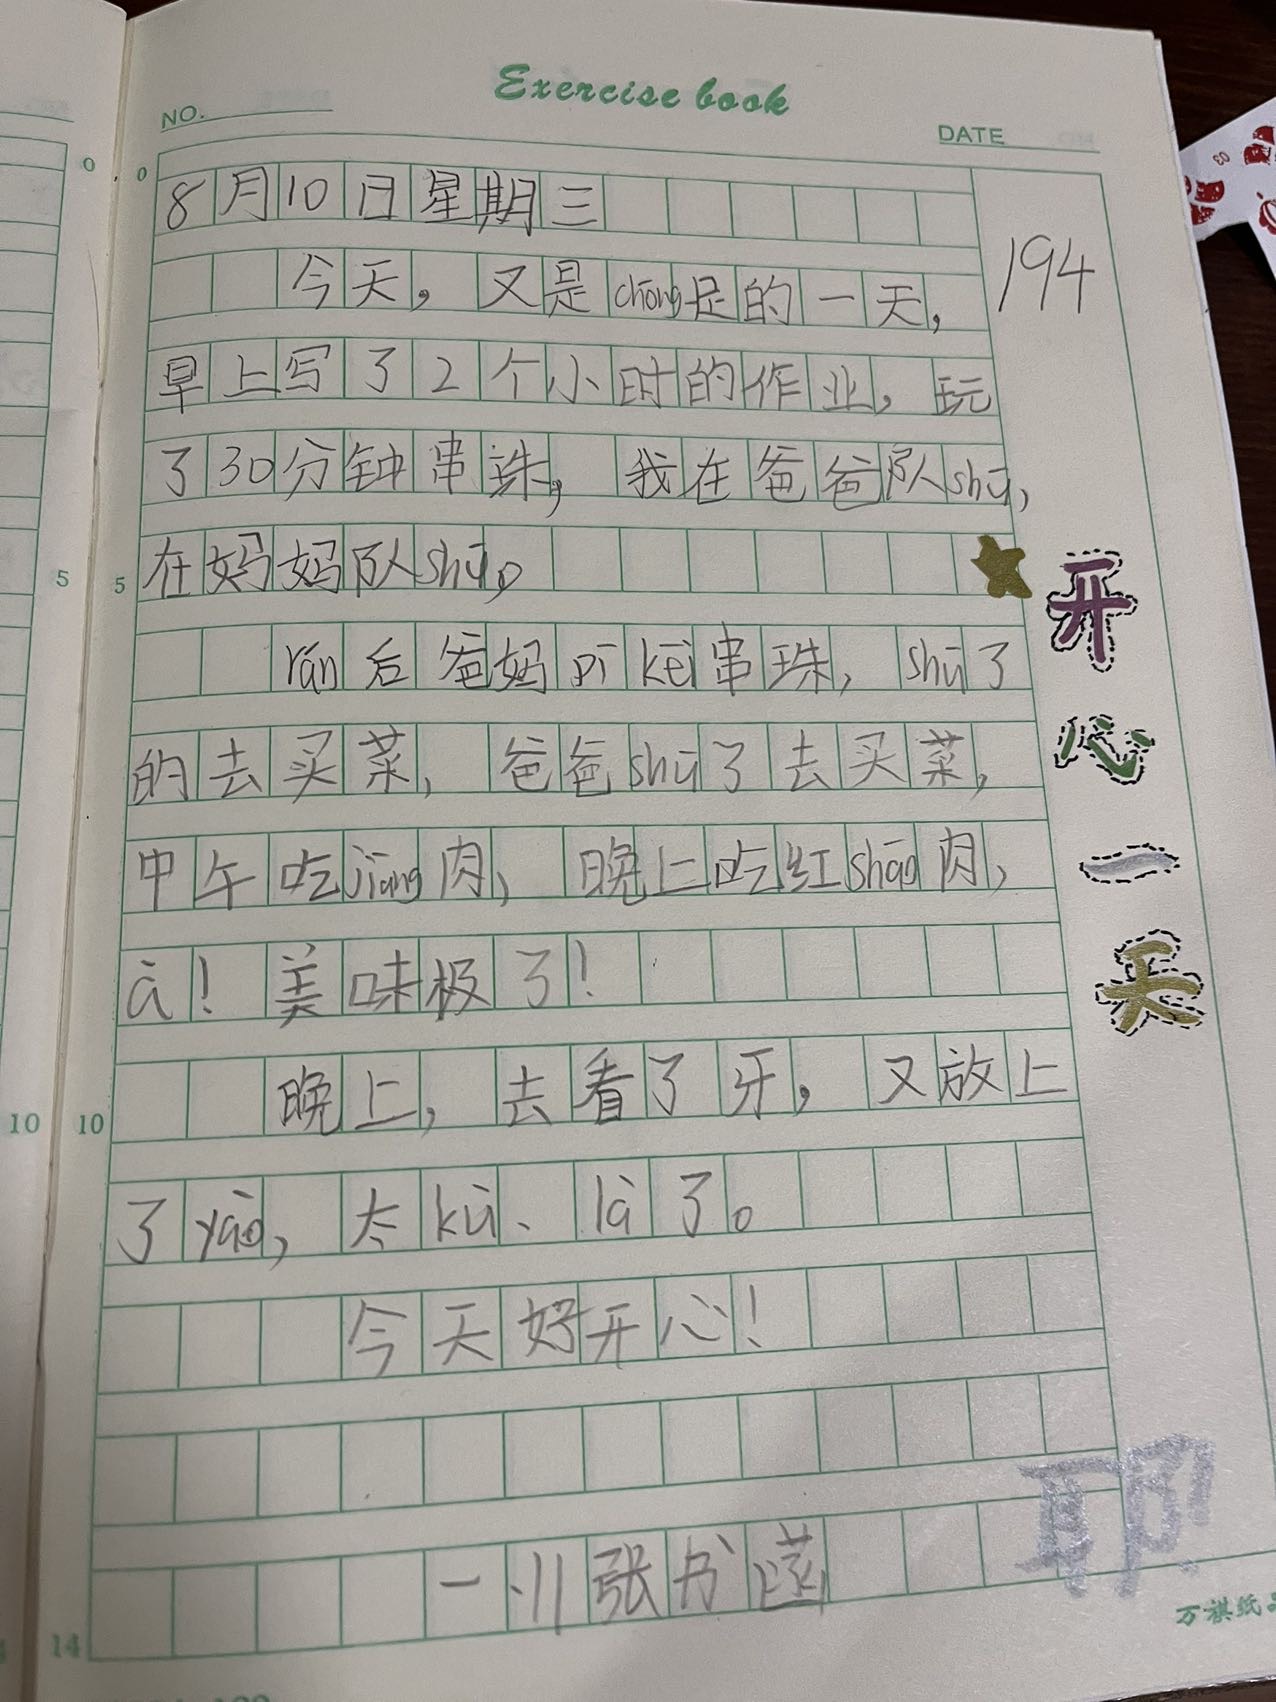 Exercise book
NO.
DATE
0
0
8月10日星期三
194
今天，又是chōng足的一天，
早上写了2个小时的作业，玩
了30分钟串珠，我在爸爸队shū，
在妈妈队shū。
5
5
rán后爸妈pī kēi串珠，shū了
的去买菜，爸爸shū了去买菜，
中午吃jiàng肉，晚上吃红shāo肉，
à！美味极了！
晚上，去看了牙，又放上
10
10
了yào，太kù、là了。
今天好开心！
张书菡
14
开心一天
耶!
万祺纸品